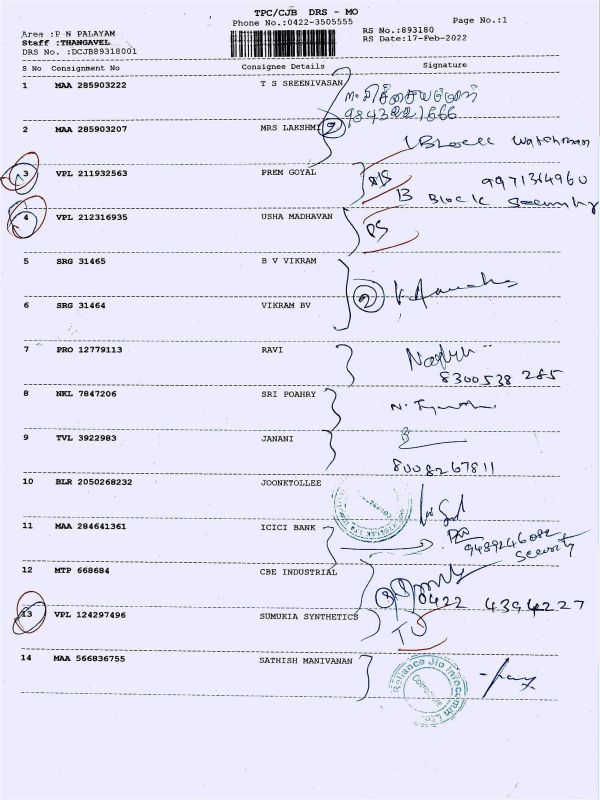 TPC/CJB DRS - MO
Phone No.:0422-3505555
Page No.:1
Area :P N PALAYAM
Staff :THANGAVEL
DRS No. :DCJB89318001
RS No.:893180
RS Date:17-Feb-2022
S No Consignment No Consignee Details Signature
1 MAA 285903222 T S SREENIVASAN
9843221666
2 MAA 285903207 MRS LAKSHMI 2
Block watchman
3 VPL 211932563 PREM GOYAL
9971314960
B Block Security
4 VPL 212316935 USHA MADHAVAN DS
5 SRG 31465 B V VIKRAM
2
6 SRG 31464 VIKRAM BV
7 PRO 12779113 RAVI
8300538 285
8 NKL 7847206 SRI POAHRY
9 TVL 3922983 JANANI
8008267811
10 BLR 2050268232 JOONKTOLLEE
11 MAA 284641361 ICICI BANK
9489246082
Security
12 MTP 668684 CBE INDUSTRIAL
0422 4394227
13 VPL 124297496 SUMUKIA SYNTHETICS
14 MAA 566836755 SATHISH MANIVANAN
Reliance Jio Infocomm Ltd
Coimbatore